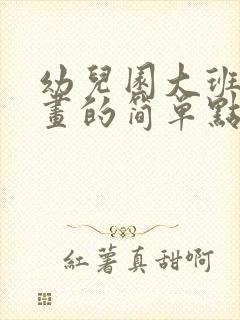 幼兒園大班
畫的簡單點
紅薯真甜啊